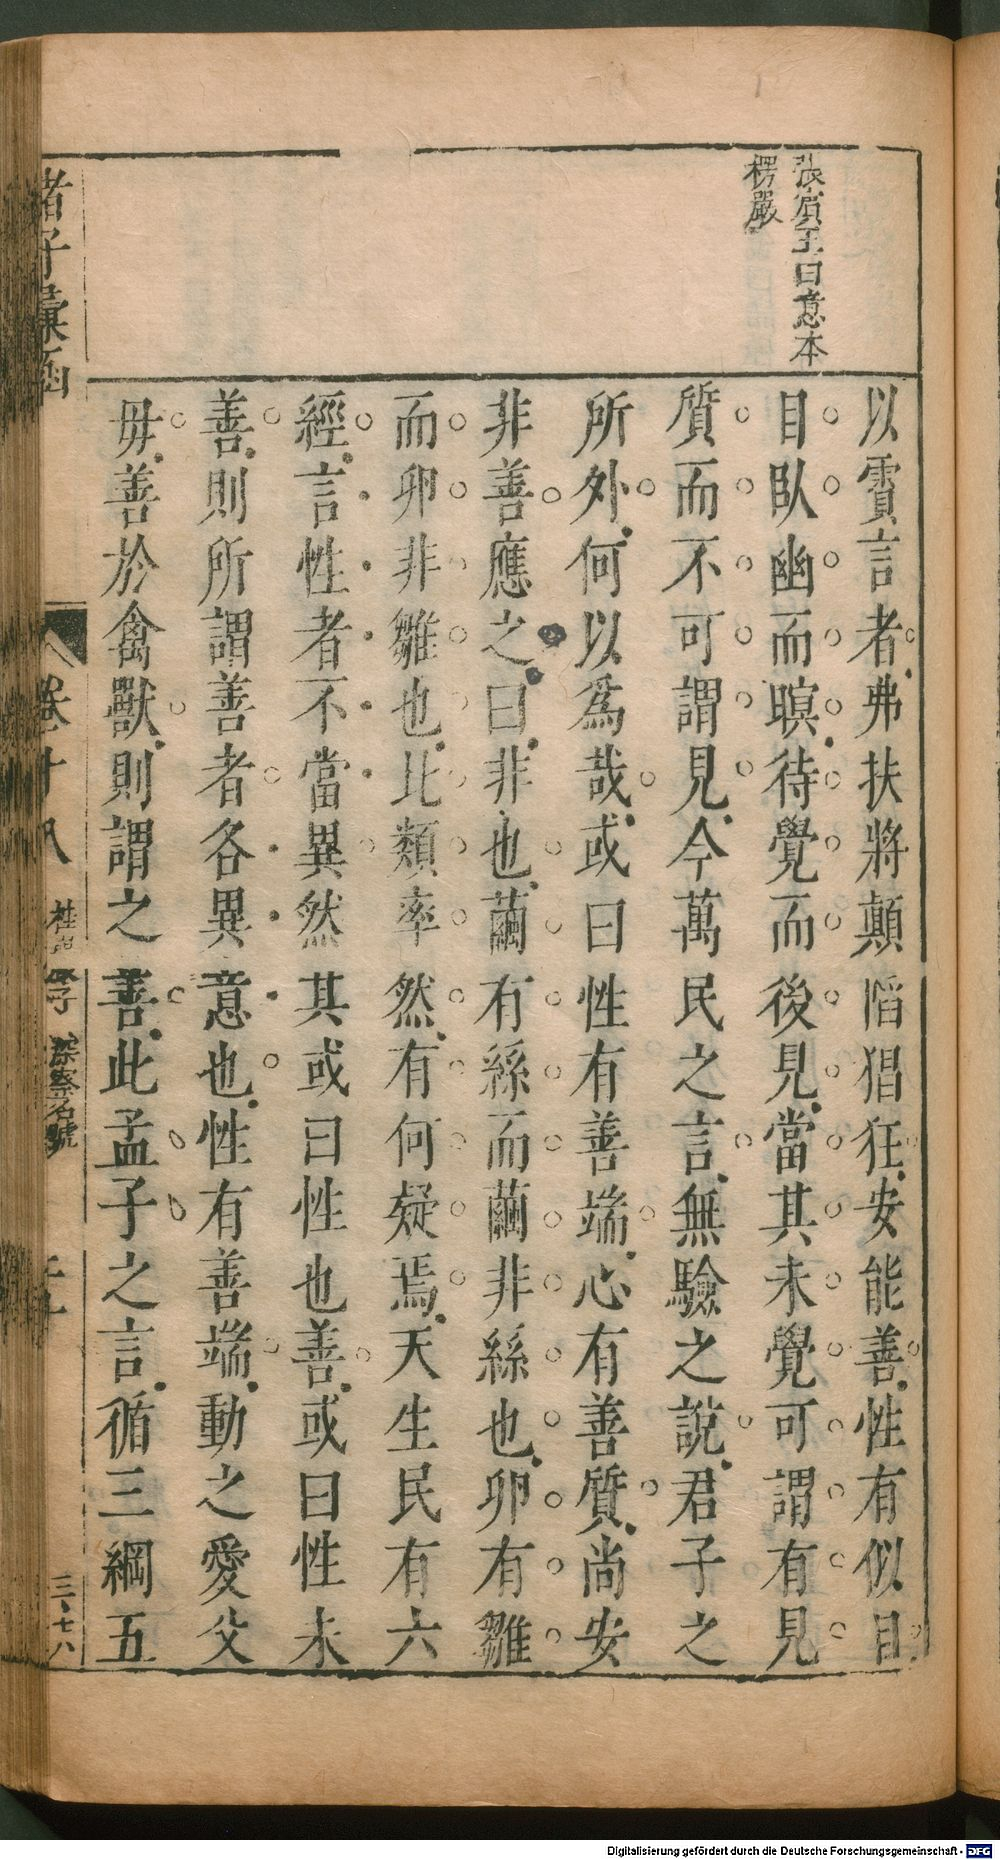 張賓王曰意本
楞嚴
以霣言者弗扶將顛䧟猖狂安能善性有似目
目臥幽而瞑待覺而後見當其未覺可謂有見
質而不可謂見今萬民之言無驗之說君子之
所外何以為哉或曰性有善端心有善質尚安
非善應之曰非也繭有絲而繭非絲也卵有雛
而卵非雛也比類率然有何疑焉天生民有六
經言性者不當異然其或曰性也善或曰性未
善則所謂善者各異意也性有善端動之愛父
毋善於禽獸則謂之善此孟子之言循三綱五
諸子彙函
卷十八
深察名號
三、七八
Digitalisierung gefördert durch die Deutsche Forschungsgemeinschaft - DFG